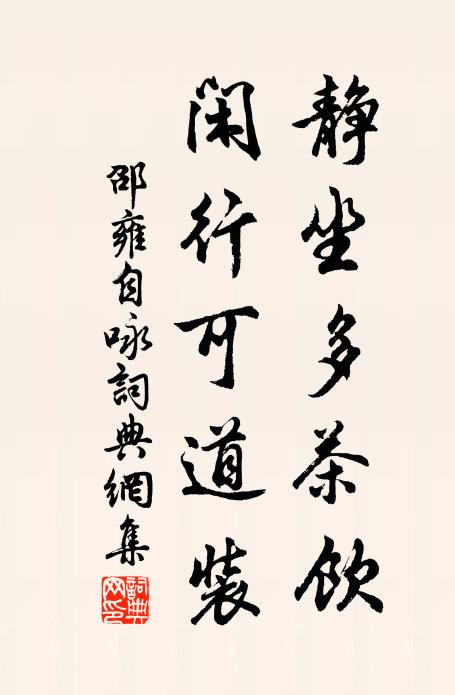 静坐多茶飲
閑行可道裝
邵雍自咏詞典網集
詞典网印